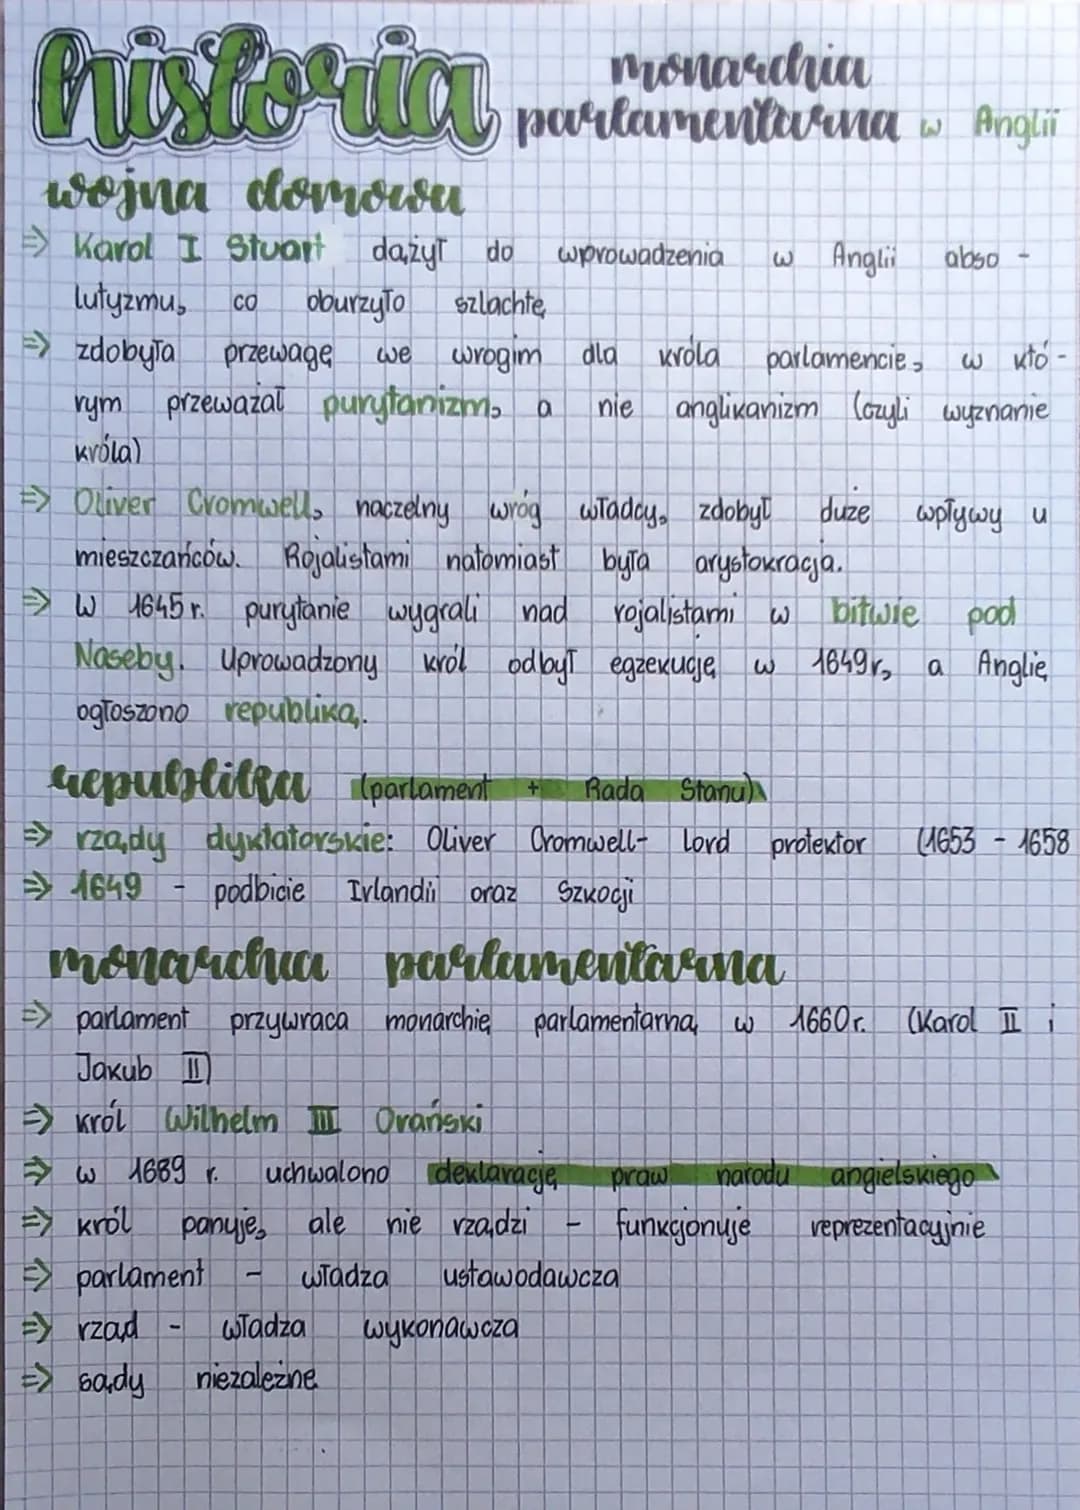 historia
monarchia
parlamentarna w Anglii
wojna domowa
=> Karol I Stuart dążył do wprowadzenia w Anglii abso -
lutyzmu, co oburzyło szlachtę
=> zdobyła przewagę we wrogim dla króla parlamencie, w któ -
rym przeważał purytanizm, a nie anglikanizm (czyli wyznanie
króla)
=> Oliver Cromwell, naczelny wróg władcy, zdobył duże wpływy u
mieszczańców. Rojalistami natomiast była arystokracja.
=> W 1645 r. purytanie wygrali nad rojalistami w bitwie pod
Naseby. Uprowadzony król odbył egzekucję w 1649r, a Anglię
ogłoszono republiką.
republika (parlament + Rada Stanu)
=> rządy dyktatorskie: Oliver Cromwell- Lord protektor (1653 - 1658
=> 1649 - podbicie Irlandii oraz Szkocji
monarchia parlamentarna
=> parlament przywraca monarchię parlamentarną w 1660r. (Karol II i
Jakub II)
=> król Wilhelm III Orański
=> w 1689 r. uchwalono deklarację praw narodu angielskiego
=> król panuje, ale nie rządzi - funkcjonuje reprezentacyjnie
=> parlament - władza ustawodawcza
=> rząd - władza wykonawcza
=> sądy niezależne